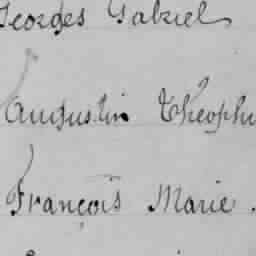 Georges Gabriel
Augustin Théophi
François Marie.